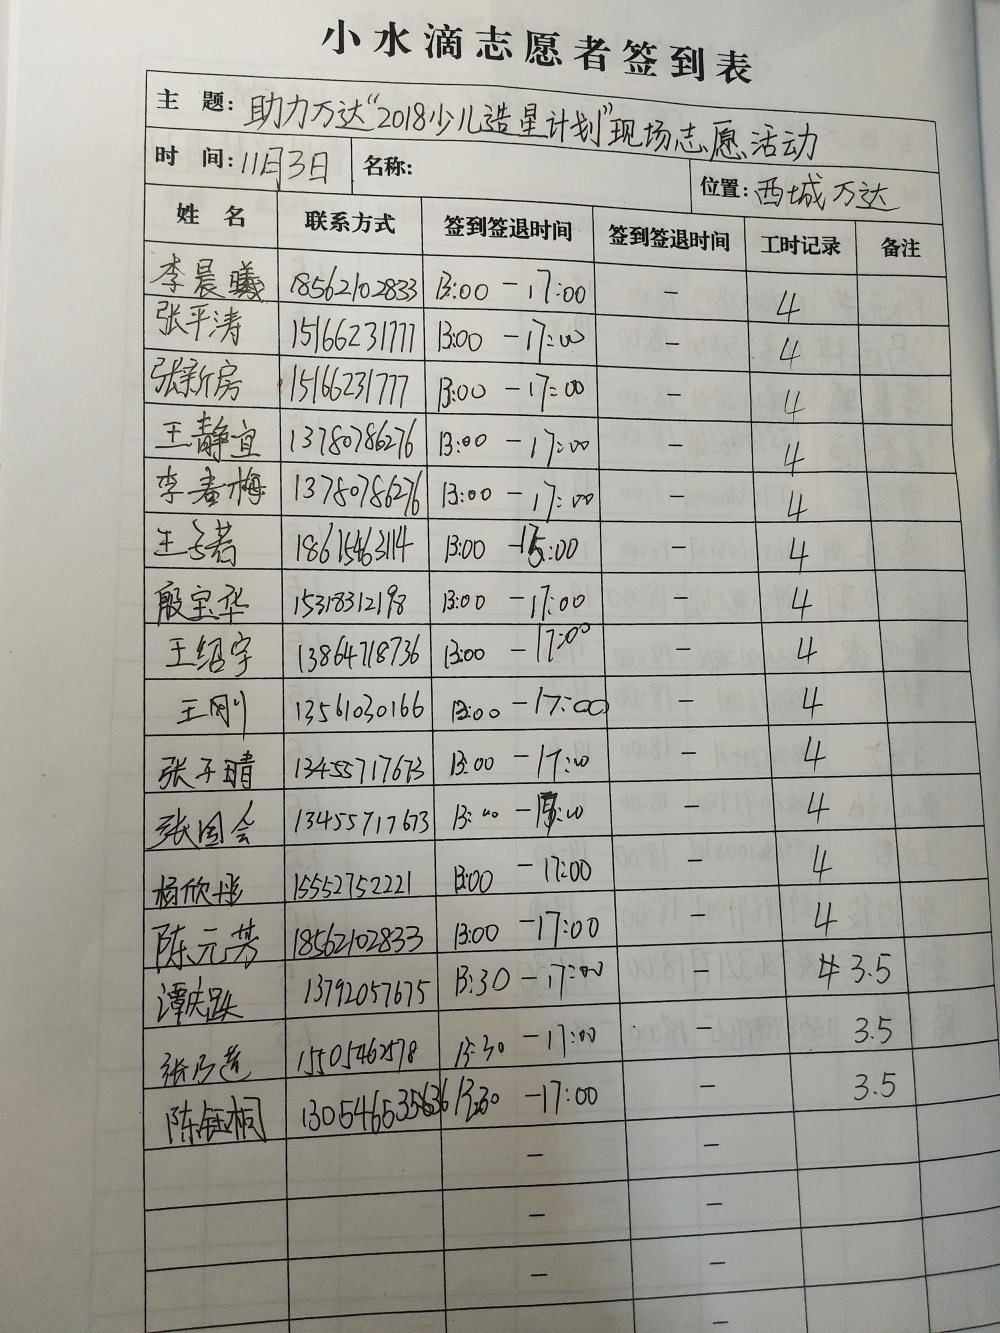 小水滴志愿者签到表
主 题: 助力万达“2018少儿造星计划”现场志愿活动
时 间: 11月3日 名称: 位置: 西城万达
姓 名 联系方式 签到签退时间 签到签退时间 工时记录 备注
李晨曦 18562102833 13:00 -17:00 - 4
张平涛 15166231777 13:00 -17:00 - 4
张新房 15166231777 13:00 -17:00 - 4
王静宜 13780786276 13:00 -17:00 - 4
李春梅 13780786276 13:00 -17:00 - 4
王 18615463114 13:00 - :00 - 4
殷宝华 15318312198 13:00 -17:00 - 4
王绍宇 13864718736 13:00 -17:00 - 4
王刚 13561030166 13:00 -17:00 - 4
张子晴 13455717673 13:00 -17:00 - 4
张国会 13455717673 13:00 - :00 - 4
杨欣彤 15552752221 13:00 -17:00 - 4
陈元芳 18562102833 13:00 -17:00 - 4
谭庆 13792057675 13:30 -17:00 - 3.5
张 15505462578 13:30 -17:00 - 3.5
陈钰桐 13:30 -17:00 - 3.5
- -
- -
- -